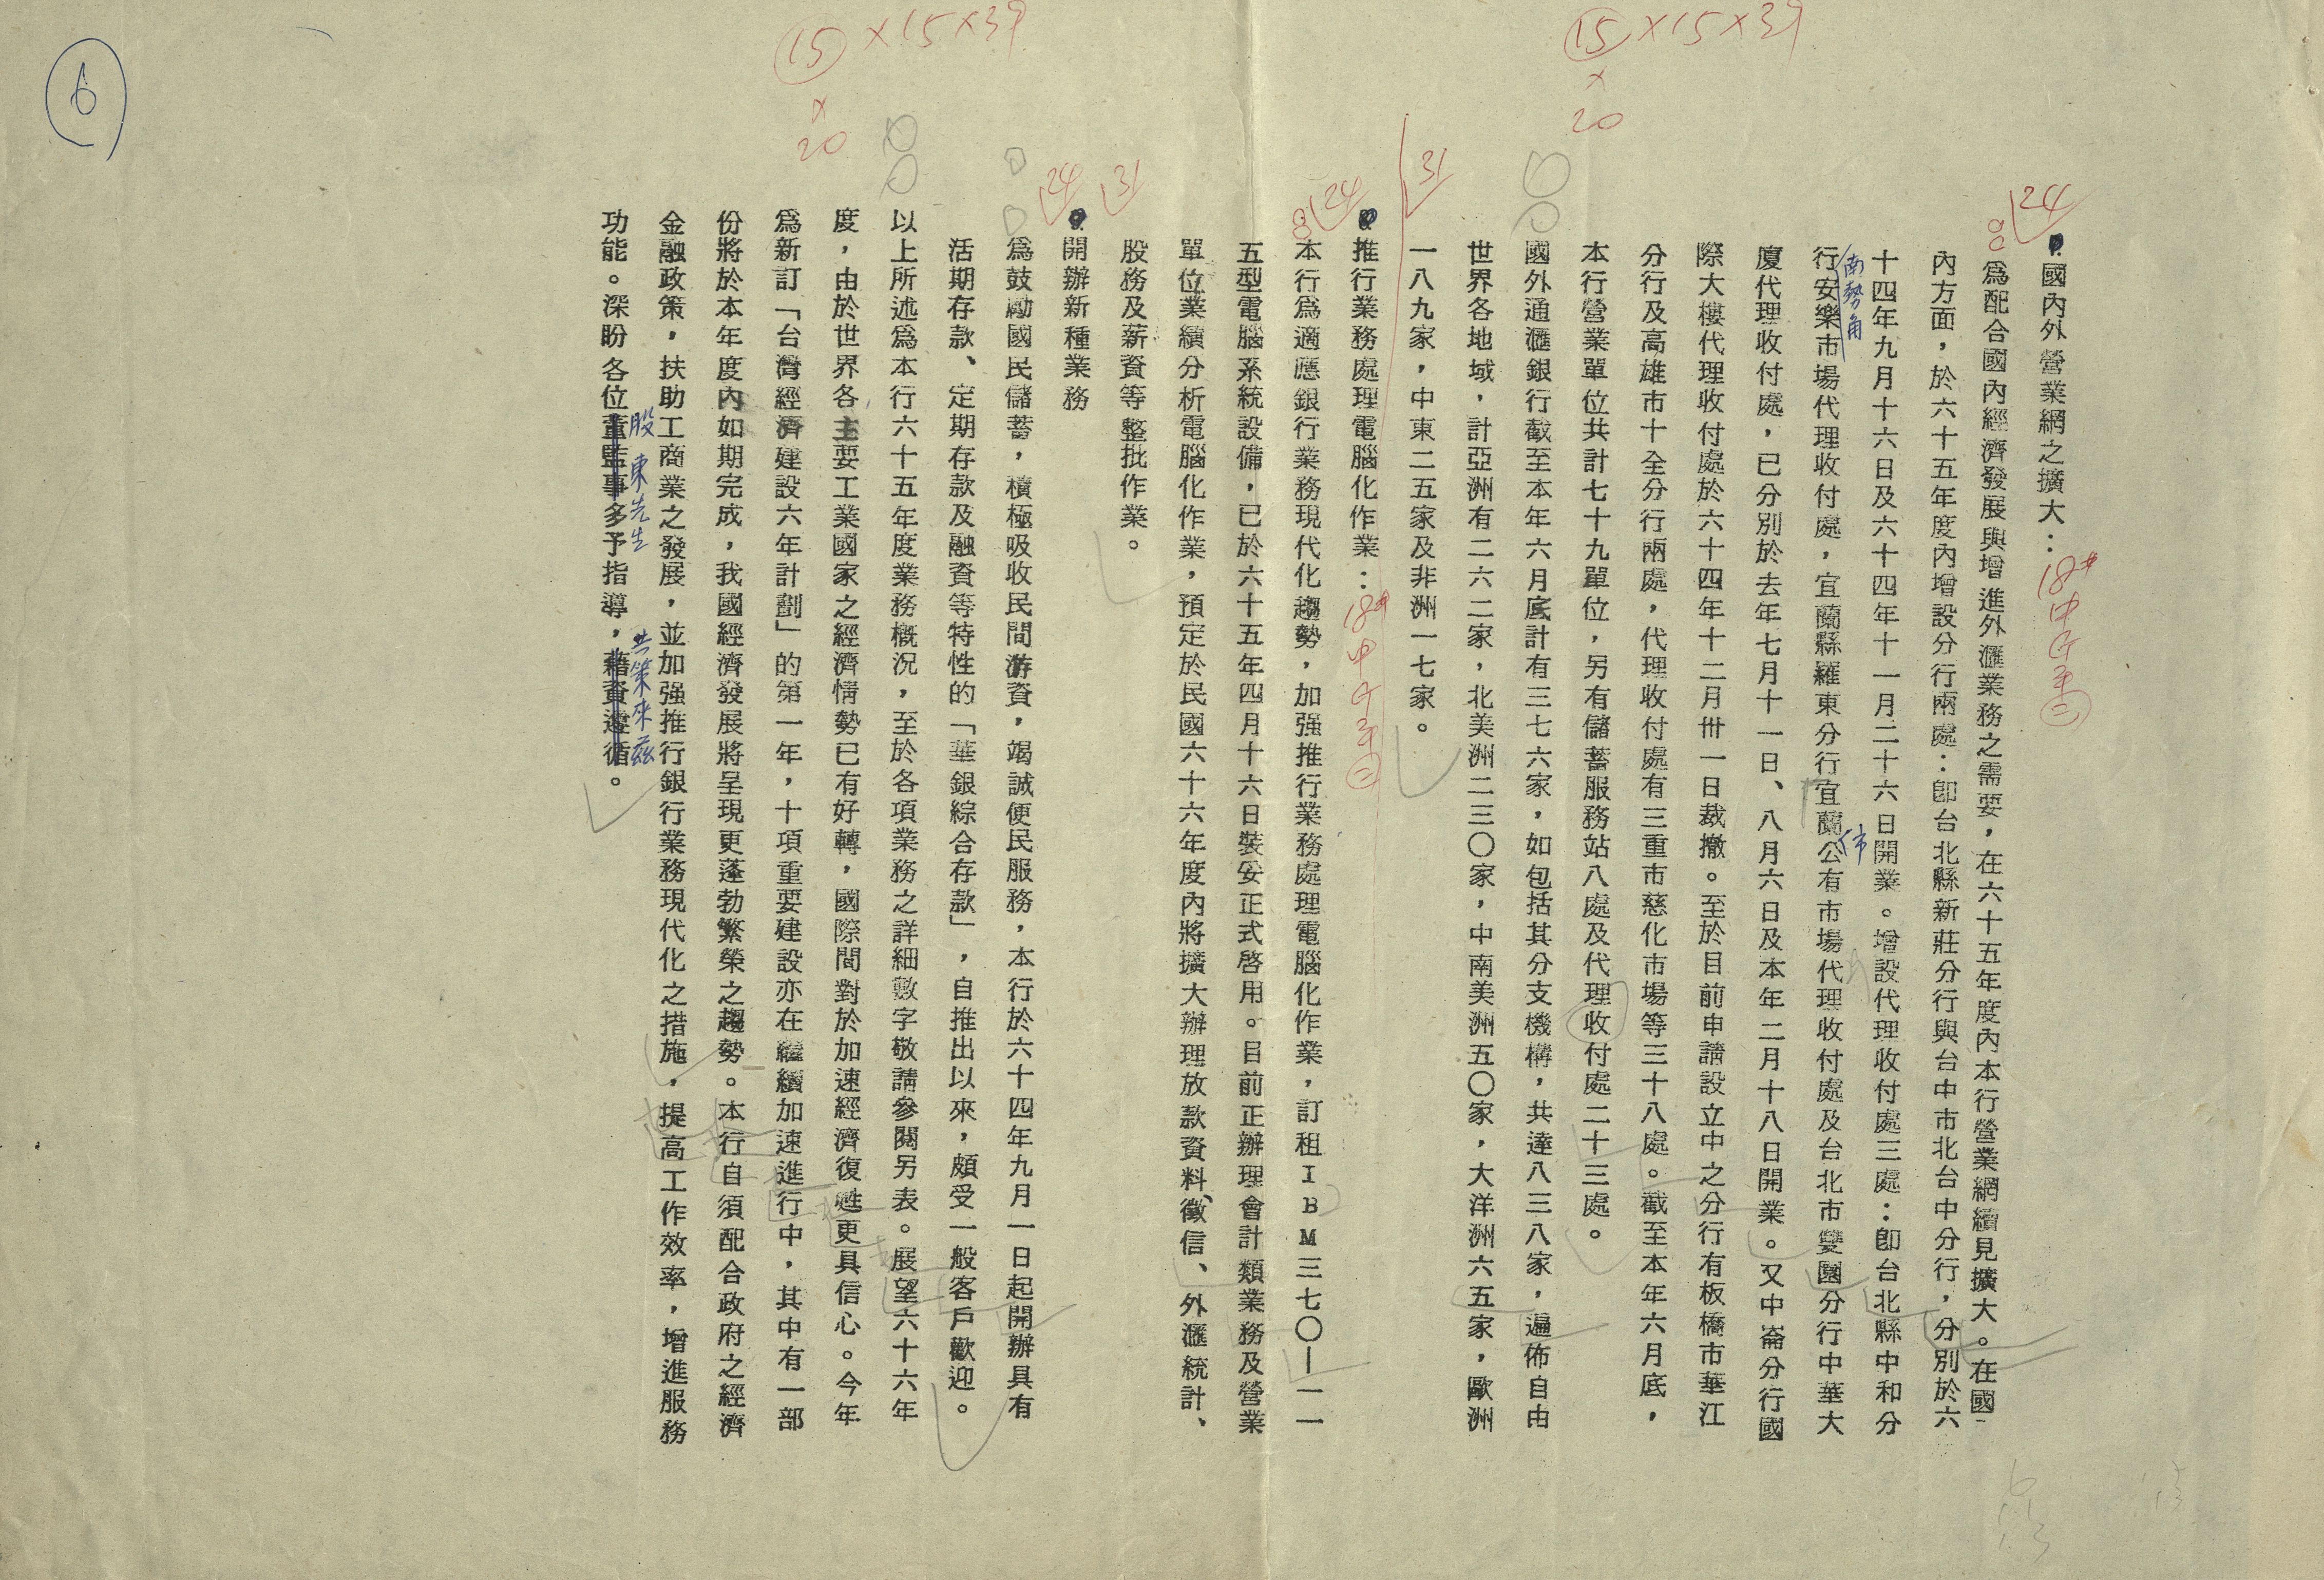 國內外營業網之擴大：
為配合國內經濟發展與增進外滙業務之需要，在六十五年度內本行營業網續見擴大。在國
內方面，於六十五年度內增設分行兩處：卽台北縣新莊分行與台中市北台中分行，分別於六
十四年九月十六日及六十四年十一月二十六日開業。增設代理收付處三處：卽台北縣中和分
南勢角
行安樂市場代理收付處，宜蘭縣羅東分行宜蘭公有市場代理收付處及台北市雙園分行中華大
廈代理收付處，已分別於去年七月十一日、八月六日及本年二月十八日開業。又中崙分行國
際大樓代理收付處於六十四年十二月卅一日裁撤。至於目前申請設立中之分行有板橋市華江
分行及高雄市十全分行兩處，代理收付處有三重市慈化市場等三十八處。截至本年六月底，
本行營業單位共計七十九單位，另有儲蓄服務站八處及代理收付處二十三處。
國外通滙銀行截至本年六月底計有三七六家，如包括其分支機構，共達八三八家，遍佈自由
世界各地域，計亞洲有二六二家，北美洲二三〇家，中南美洲五〇家，大洋洲六五家，歐洲
一八九家，中東二五家及非洲一七家。
推行業務處理電腦化作業：
本行為適應銀行業務現代化趨勢，加强推行業務處理電腦化作業，訂租IBM三七〇—一一
五型電腦系統設備，已於六十五年四月十六日裝安正式啓用。目前正辦理會計類業務及營業
單位業績分析電腦化作業，預定於民國六十六年度內將擴大辦理放款資料、徵信、外滙統計、
股務及薪資等整批作業。
開辦新種業務
為鼓勵國民儲蓄，積極吸收民間游資，竭誠便民服務，本行於六十四年九月一日起開辦具有
活期存款、定期存款及融資等特性的「華銀綜合存款」，自推出以來，頗受一般客戶歡迎。
以上所述為本行六十五年度業務概況，至於各項業務之詳細數字敬請參閱另表。展望六十六年
度，由於世界各主要工業國家之經濟情勢已有好轉，國際間對於加速經濟復甦更具信心。今年
為新訂「台灣經濟建設六年計劃」的第一年，十項重要建設亦在繼續加速進行中，其中有一部
份將於本年度內如期完成，我國經濟發展將呈現更蓬勃繁榮之趨勢。本行自須配合政府之經濟
金融政策，扶助工商業之發展，並加强推行銀行業務現代化之措施，提高工作效率，增進服務
股東先生 共策來茲
功能。深盼各位董監事多予指導，藉資遵循。
15×15×39
×
20
15×15×39
×
20
24
31
24
31
24
6